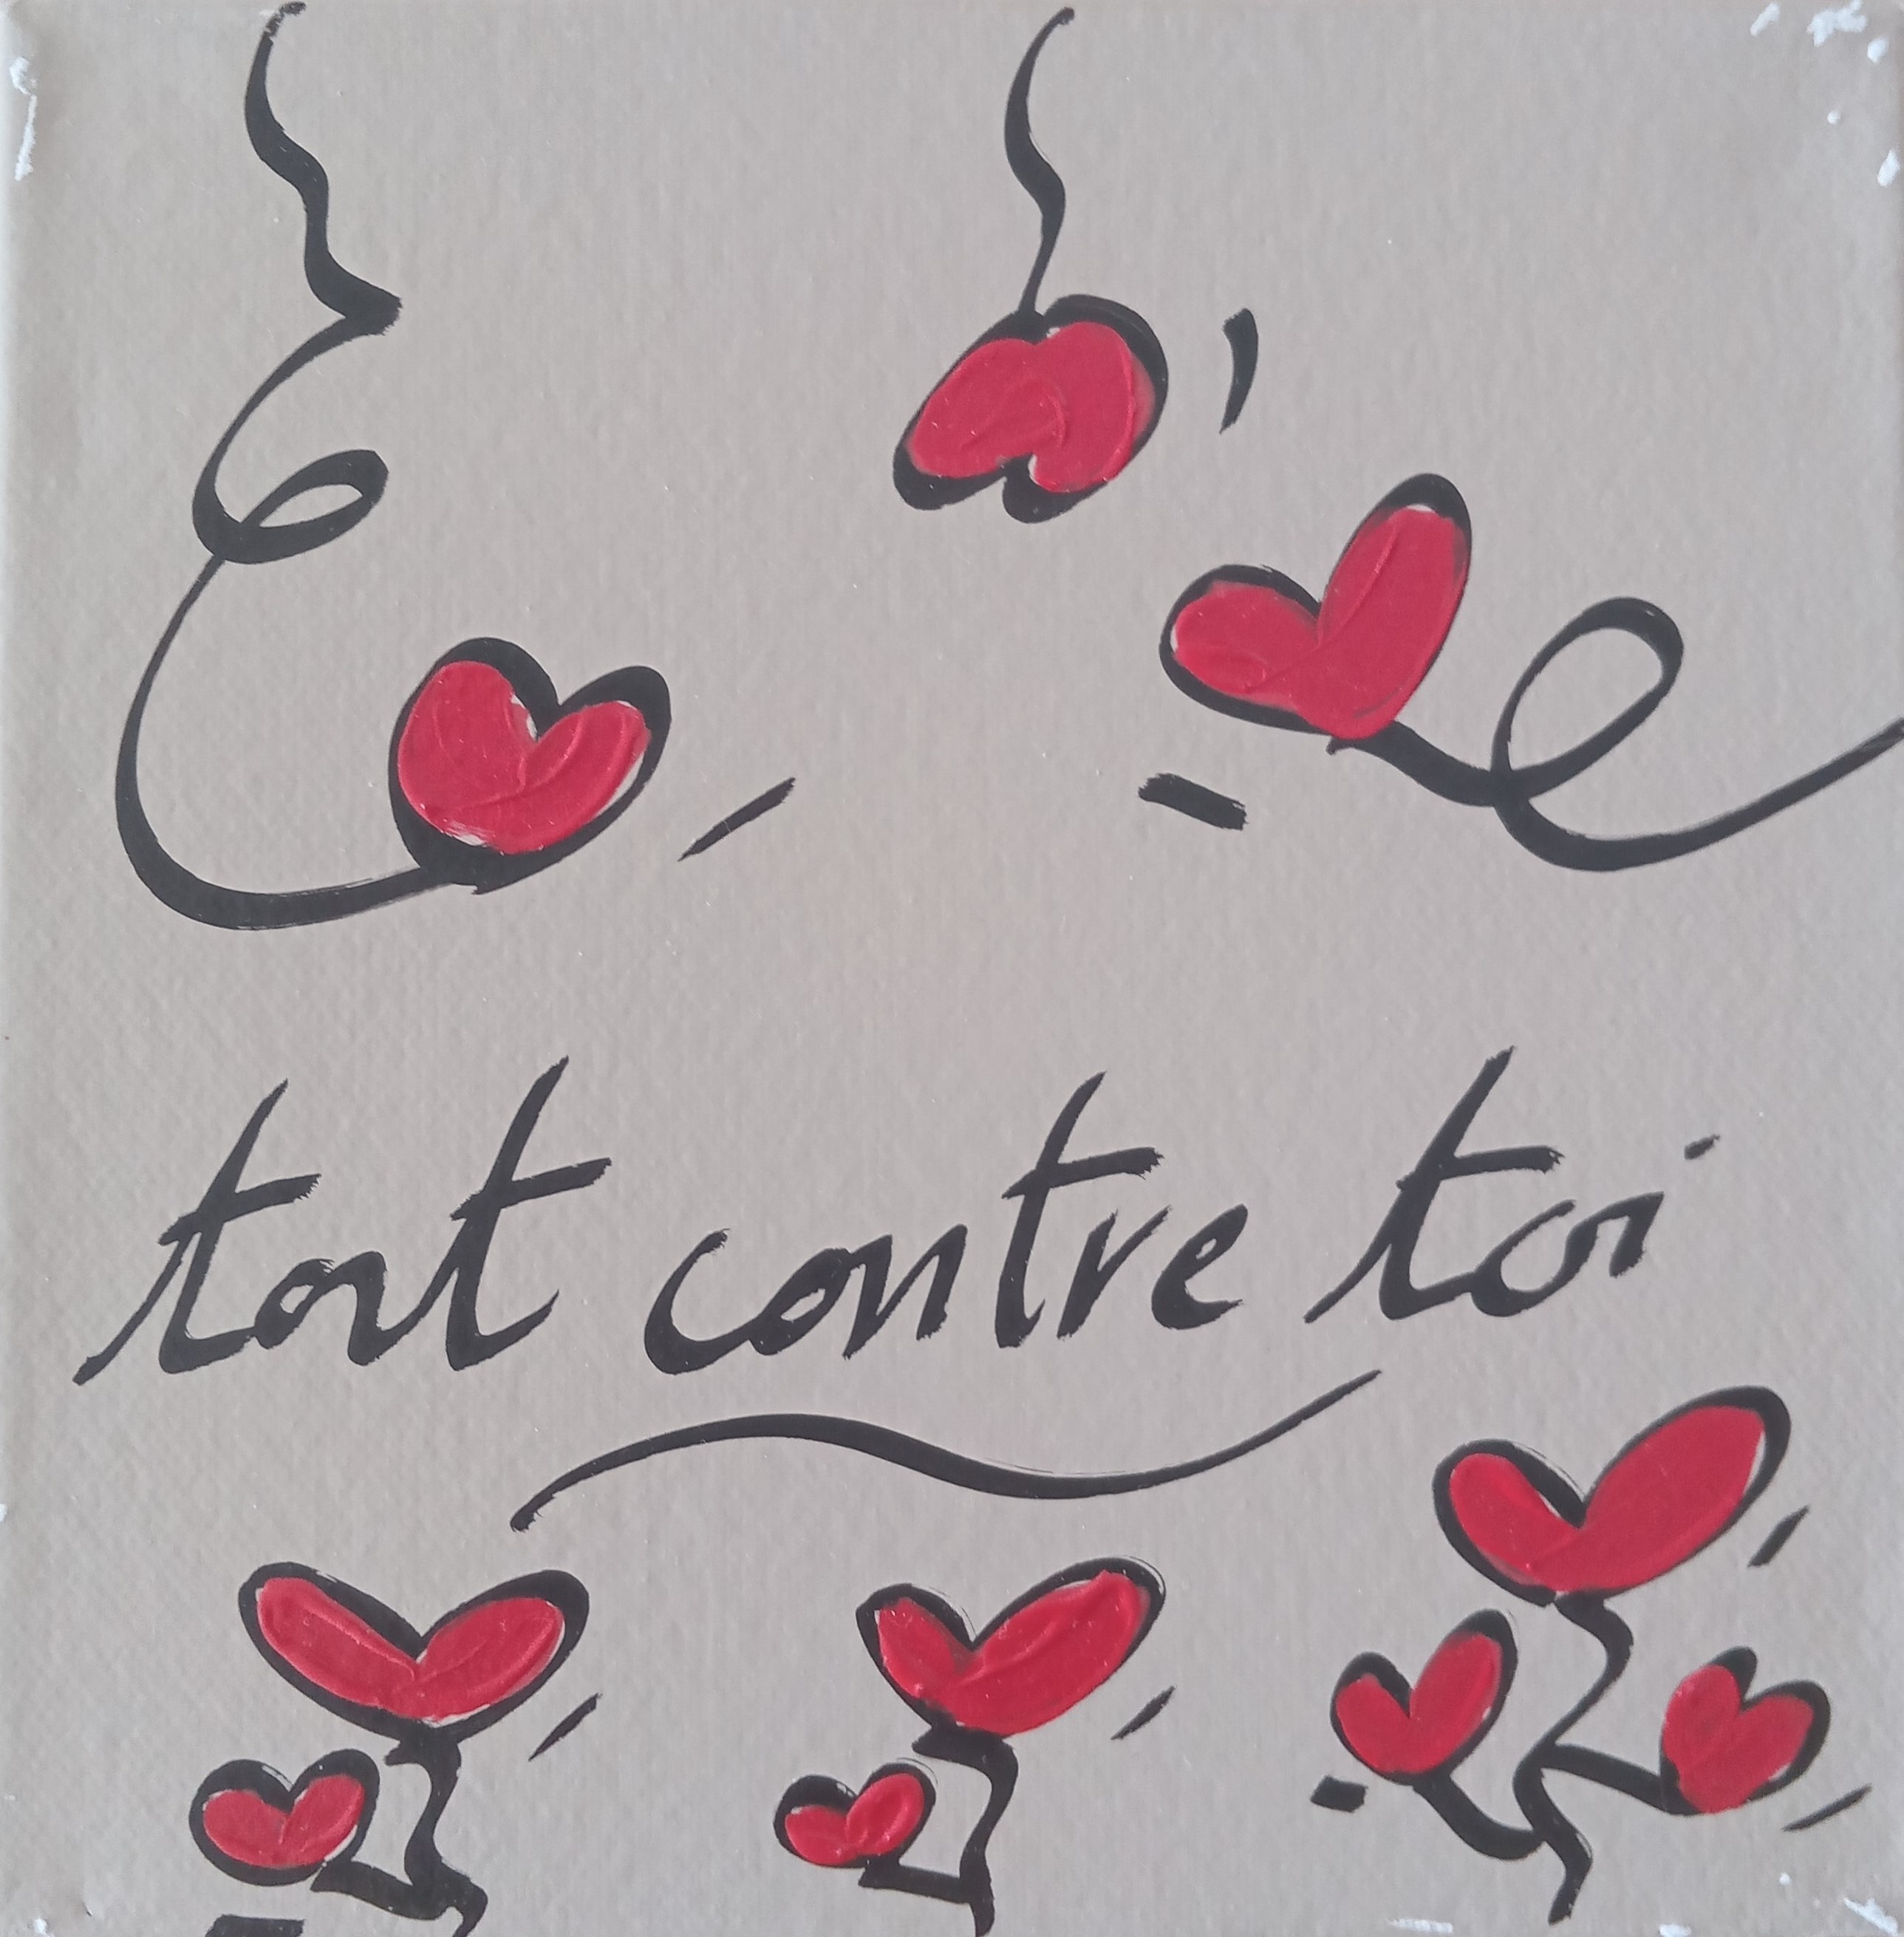 tout contre toi